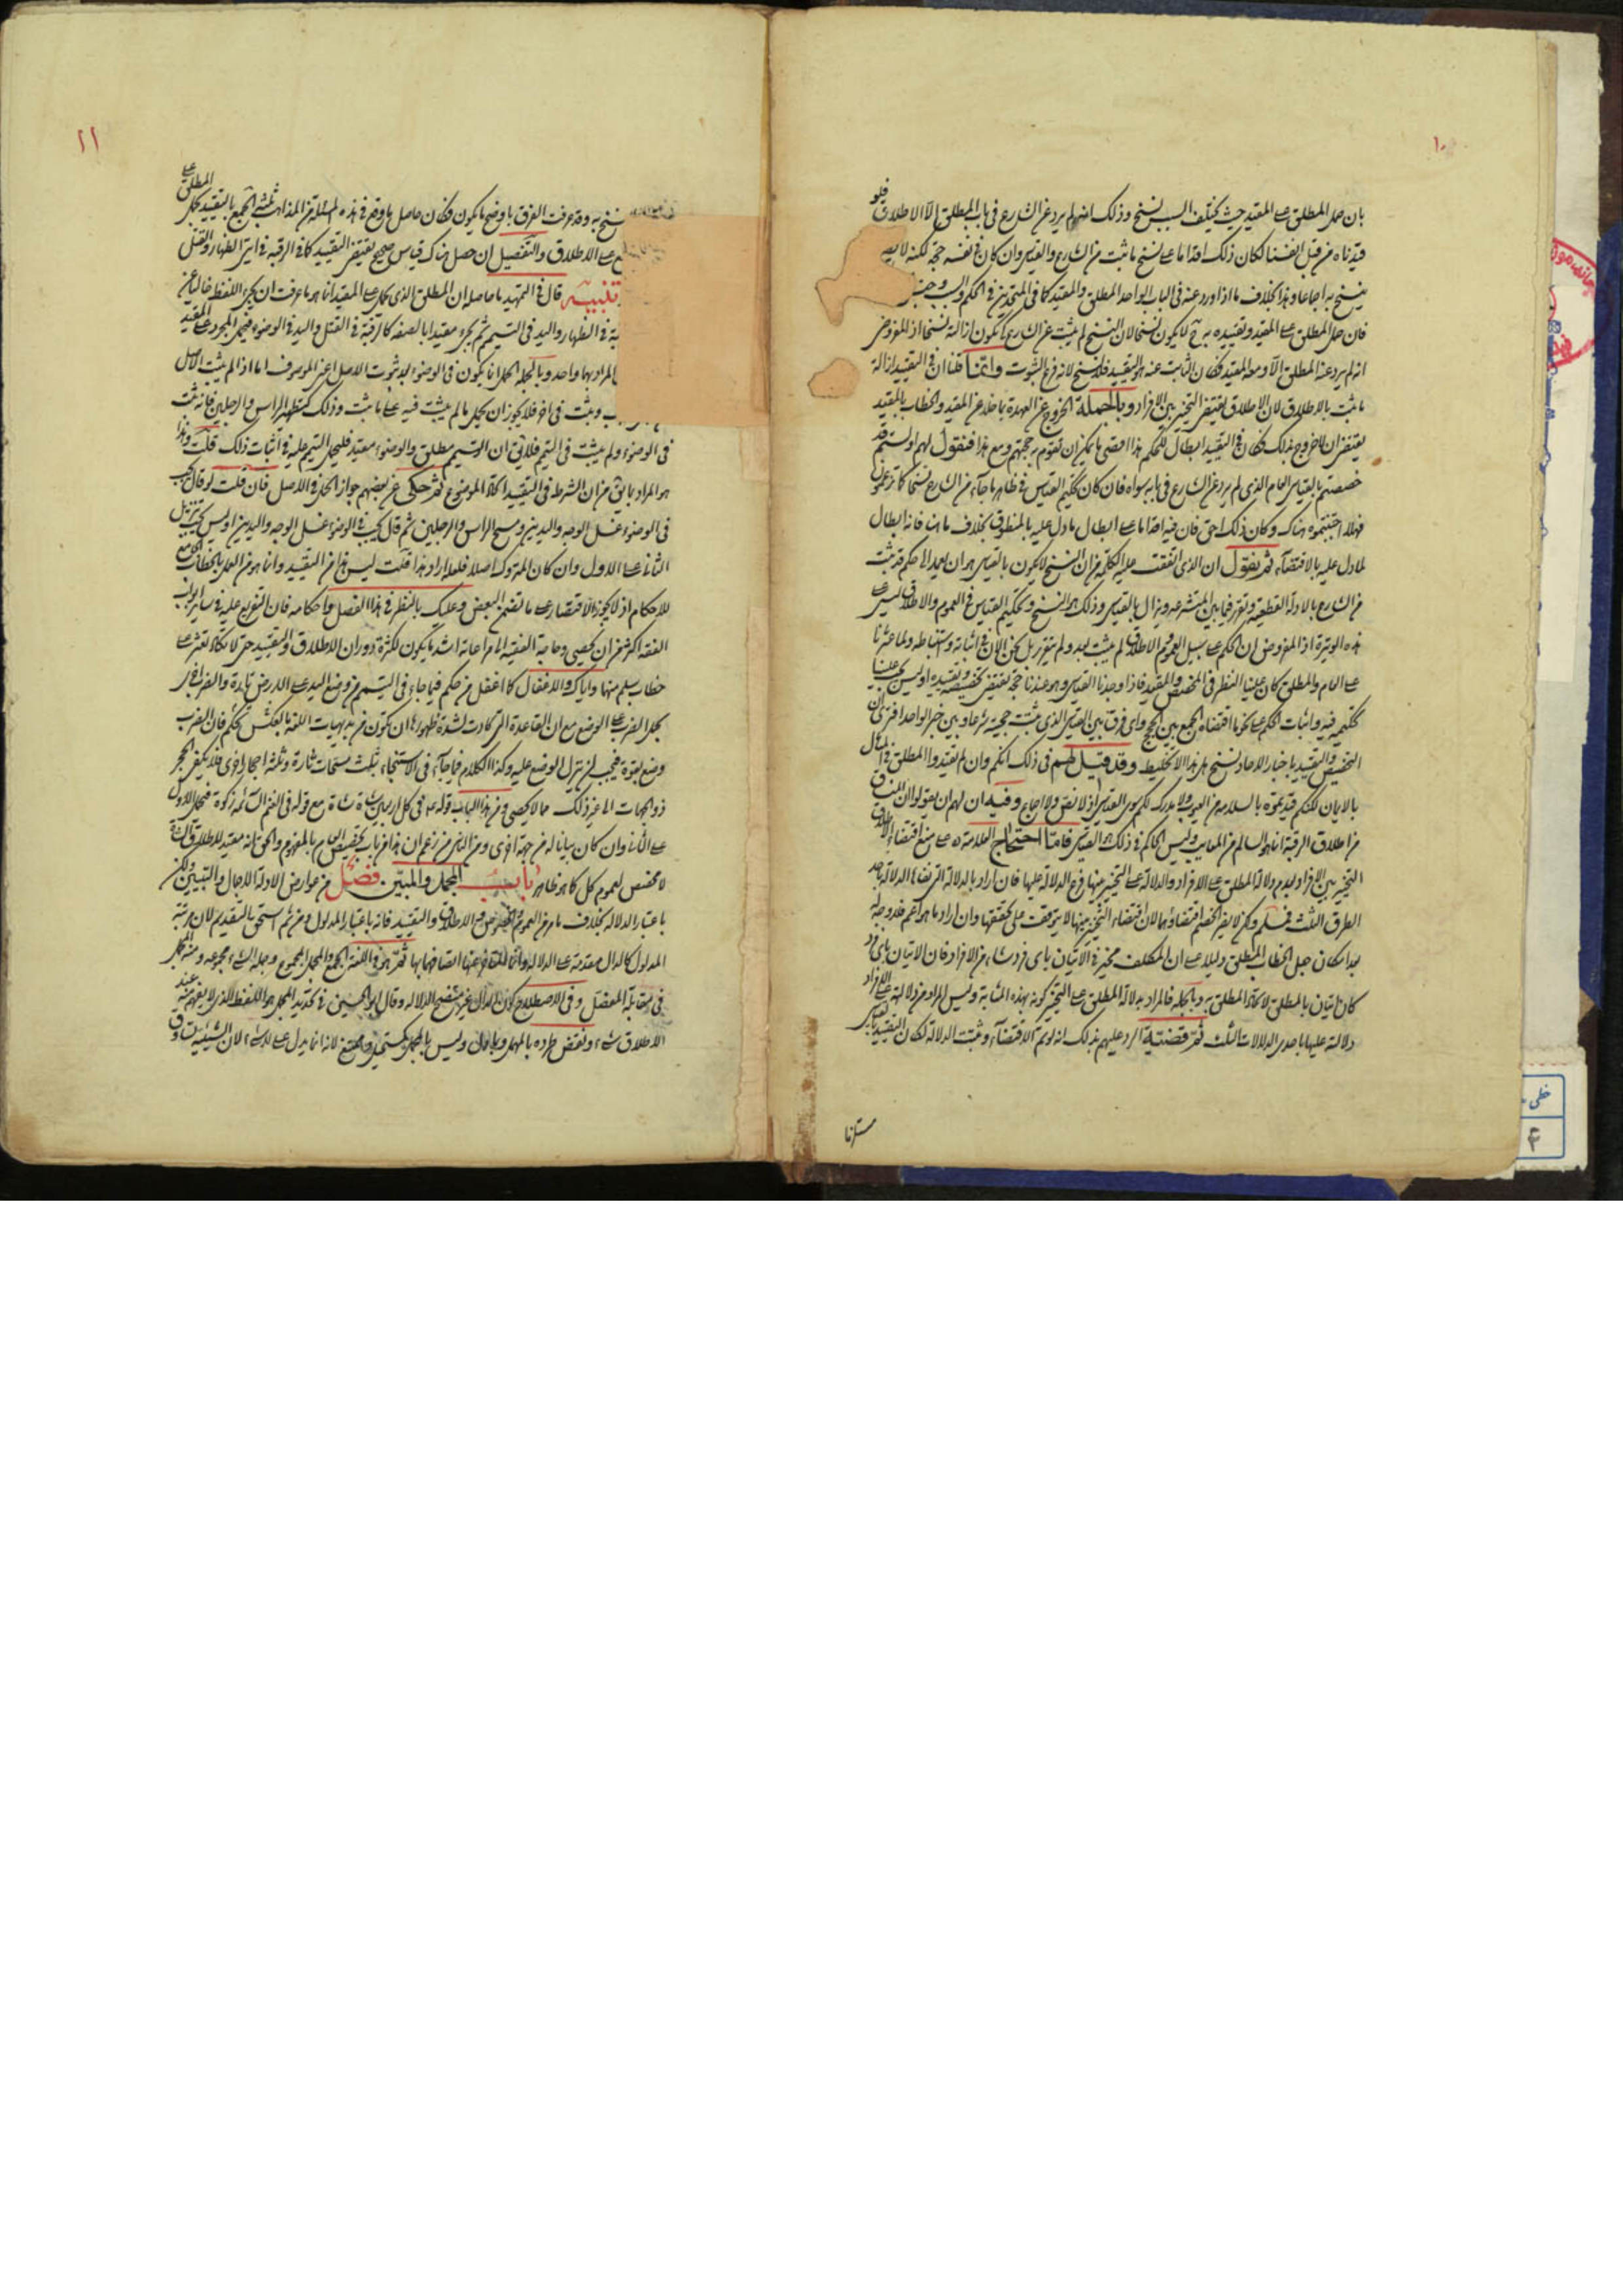 ١٠
بان حمل المطلق على المقيد حيث يختلف السبب نسخ وذلك انه لم يرد عن الشارع فى باب المطلق الا الاطلاق فلو
قيدناه من قبل انفسنا لكان ذلك اقداما على نسخ ما ثبت من الشارع والقياس وان كان فى نفسه حجة لكنه لا
ينسخ به اجماعا وهذا بخلاف ما اذا ورد عنه فى الباب الواحد المطلق والمقيد كما فى المتحدين فى الحكم والسبب
فان حمل المطلق على المقيد وتقييده به ح لا يكون نسخا لان النسخ لم يثبت عن الشارع كى يكون ازالته نسخا اذ المفروض
انه لم يرد عنه المطلق الا ومعه المقيد فكان الثابت عنه هو المقيد فلا نسخ لانه فرع الثبوت وانما قلنا ان فى التقييد ازالة
ما ثبت بالاطلاق لان الاطلاق يقتضى التخيير بين الافراد وبالجملة الخروج عن العهدة بما خلا عن القيد والخطاب بالمقيد
يقتضى ان لا خروج بذلك فكان فى التقييد ابطال للحكم هذا اقصى ما يمكن ان تقوم به حجتهم ومع هذا فنقول لهم اولستم قد
خصصتم بالقياس العام الذى لم يرد عن الشارع فى بابه سواه فان كان تحكيم القياس فى ظاهر ما جاء من الشارع نسخا كما تزعمون
فهلا اجتنبتموه هناك وكان ذلك احق فان فيه اقداما على ابطال ما دل عليه بالمنطوق بخلاف ما هنا فانه ابطال
لما دل عليه بالاقتضاء ثم نقول ان الذى اتفقت عليه الكلمة من ان النسخ لا يكون بالقياس هو ان يعمد الى حكم قد ثبت
من الشارع بالادلة القطعية وتقرر فيما بين المتشرعة ويزال بالقياس وذلك هو النسخ وتحكيم القياس فى العموم والاطلاق ليس على
هذه الوتيرة اذ المفروض ان الحكم على سبيل العموم والاطلاق لم يثبت بعد ولم يتقرر بل نحن الان فى اثباته واستنباطه ولما عثرنا
على العام والمطلق كان علينا النظر فى المخصص والمقيد فاذا وجدنا القياس وهو عندنا حجة يقتضى تخصيصه وتقييده اوليس يجب علينا
تحكيمه فيه واثبات الحكم على نحو ما اقتضاه الجمع بين الحجج واى فرق بين القياس الذى ثبتت حجيته شرعا وبين خبر الواحد افترى ان
التخصيص والتقييد باخبار الاحاد نسخ هل هذا الا تخليط وقد قيل لهم فى ذلك انكم وان لم تقيدوا المطلق فى المثال
بالايمان لكنكم قيدتموه بالسلامة من العيوب ولا مدرك لكم سوى القياس اذ لا نص ولا اجماع وفيه ان لهم ان يقولوا ان المنساق
من اطلاق الرقبة انما هو السالم من المعايب وليس الحاكم فى ذلك هو القياس فاما احتجاج العلامة ره على منع اقتضاء الاطلاق
التخيير بين الافراد بعدم دلالة المطلق على الافراد والدلالة على التخيير بينها فرع الدلالة عليها فان اراد بالدلالة التى نفاها الدلالة باحد
الطرق الثلث فمسلم ولكن لا يضر الخصم اقتضاؤها لان اقتضاء التخيير بينها لا يتوقف على تحققها وان اراد ما هو اعم فلا وجه له
بداهة ان جعل الخطاب المطلق دليلا على ان المكلف مخير فى الاتيان باى فرد شاء من الافراد فان الاتيان باى فرد
كان اتيان بالمطلق لاتحاد المطلق به وبالجملة فالمراد بدلالة المطلق على التخيير كونه بهذه المثابة وليس المراد من دلالته على الافراد
دلالته عليها باحدى الدلالات الثلث ثم قضيته الرد عليهم بذلك انه لو تم الاقتضاء وثبتت الدلالة لكان التقييد بالقياس
مستلزما
١١
نسخ به وقد عرفت الفرق باوضح ما يكون فكان حاصل ما وقع فى هذه المسئلة من المذاهب ثلثة الجمع بالتقييد بحمل المطلق على
على الاطلاق والتفصيل ان حصل هناك قياس صحيح يقتضى التقييد كما فى الرقبة فى ايتى الظهار والقتل
تنبيه قال فى التمهيد ما حاصله ان المطلق الذى يحمل على المقيد انما هو ما عرفت ان يجىء اللفظ خاليا عن
فى الظهار واليد فى التيمم ثم يجىء مقيدا بالصفة كالرقبة فى القتل واليد فى الوضوء فيحمل المجرد على المقيد
المراد بهما واحد وبالجملة الحمل انما يكون فى الوضوء بعد ثبوت الاصل اعنى الموصوف اما اذا لم يثبت الاصل
وثبت فى اخر فلا يجوز ان يحمل ما لم يثبت فيه على ما ثبت وذلك كتطهير الراس والرجلين فانه ثبت
فى الوضوء ولم يثبت فى التيمم فلا يق ان التيمم مطلق والوضوء مقيد فليحمل التيمم عليه فى اثبات ذلك قلت وهذا
هو المراد بما يق من ان الشرط فى التقييد اتحاد الموضوع ثم حكى عن بعضهم جواز الحمل فى الاصل فان قلت لو قال يجب
فى الوضوء غسل الوجه واليدين ومسح الراس والرجلين ثم قال يجب فى الوضوء غسل الوجه واليدين اوليس يجب تنزيل
الثانى على الاول وان كان المتروك اصلا فلعله اراد هذا قلت ليس هذا من التقييد وانما هو من العمل بالخطاب الجامع
للاحكام اذ لا يجوز الاقتصار على ما تضمن البعض وعليك بالنظر فى هذا الفصل واحكامه فان التفريع عليه فى سائر ابواب
الفقه اكثر من ان يحصى وحاجة الفقيه الى مراعاته اشد ما يكون لكثرة دوران الاطلاق والتقييد حتى لا تكاد تعثر على
خطاب سلم منها واياك والاغفال كما اغفل من حكم فيما جاء فى التيمم من وضع اليد على الارض تارة والضرب اخرى
بحمل الضرب على الوضع مع ان القاعدة التى كادت لشدة ظهورها ان تكون من بديهيات اللغة بالعكس تحكم فان الضرب
وضع بقوة فيجب ان ينزل الوضع عليه وكذا الكلام فيما جاء فى الاستنجاء بثلث مسحات تارة وثلثة احجار اخرى فلا يكفى الحجر
ذو الجهات الى غير ذلك مما لا يحصى ومن هذا الباب قوله ع فى كل اربعين شاة شاة مع قوله فى الغنم السائمة زكوة فيحمل الاول
على الثانى وان كان بيانا له من جهة اخرى ومن الناس من زعم ان هذا من باب تخصيص العام بالمفهوم والحق انه مقيد للاطلاق الشاة
لا مخصص لعموم كل كما هو ظاهر باب المجمل والمبين فصل من عوارض الادلة الاجمال والتبيين ولكن
باعتبار الدلالة بخلاف ما مر من العموم والخصوص والاطلاق والتقييد فانه باعتبار المدلول ومن ثم استحق التقديم لان مرتبة
المدلول كالدال متقدمة على الدلالة وانما المتاخر عنها اتصافهما بها ثم هو فى اللغة الجمع والمجمل المجموع وجملة الشىء مجموعه ومنه المجمل
فى مقابلة المفصل وفى الاصطلاح كون الدال غير متضح الدلالة وقال ابو الحسين فى تحديد المجمل هو اللفظ الذى لا يفهم منه عند
الاطلاق شىء ونقض طرده بالمهمل وليس بالمجمل والمستحيل والممتنع لانه انما يدل على لا شىء لان الشيئية تساوق